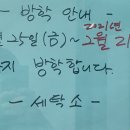 - 방학 안내 -
2021년
25일(금) ~ 2월 2
방학합니다.
- 세탁소 -